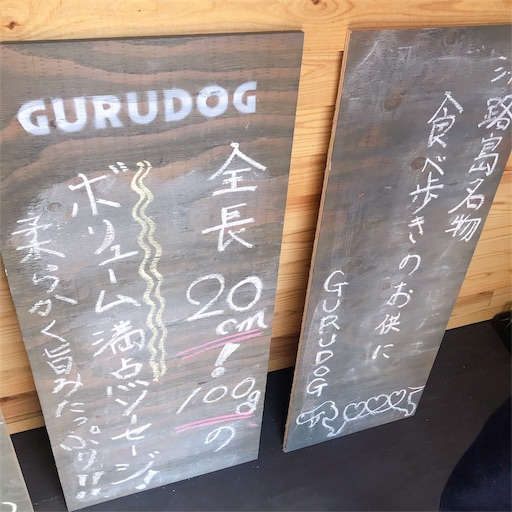 GURUDOG
全長20cm!100gの
ボリューム満点ソーセージ!
柔らかく旨みたっぷり!!
淡路島名物
食べ歩きのお供に
GURUDOG